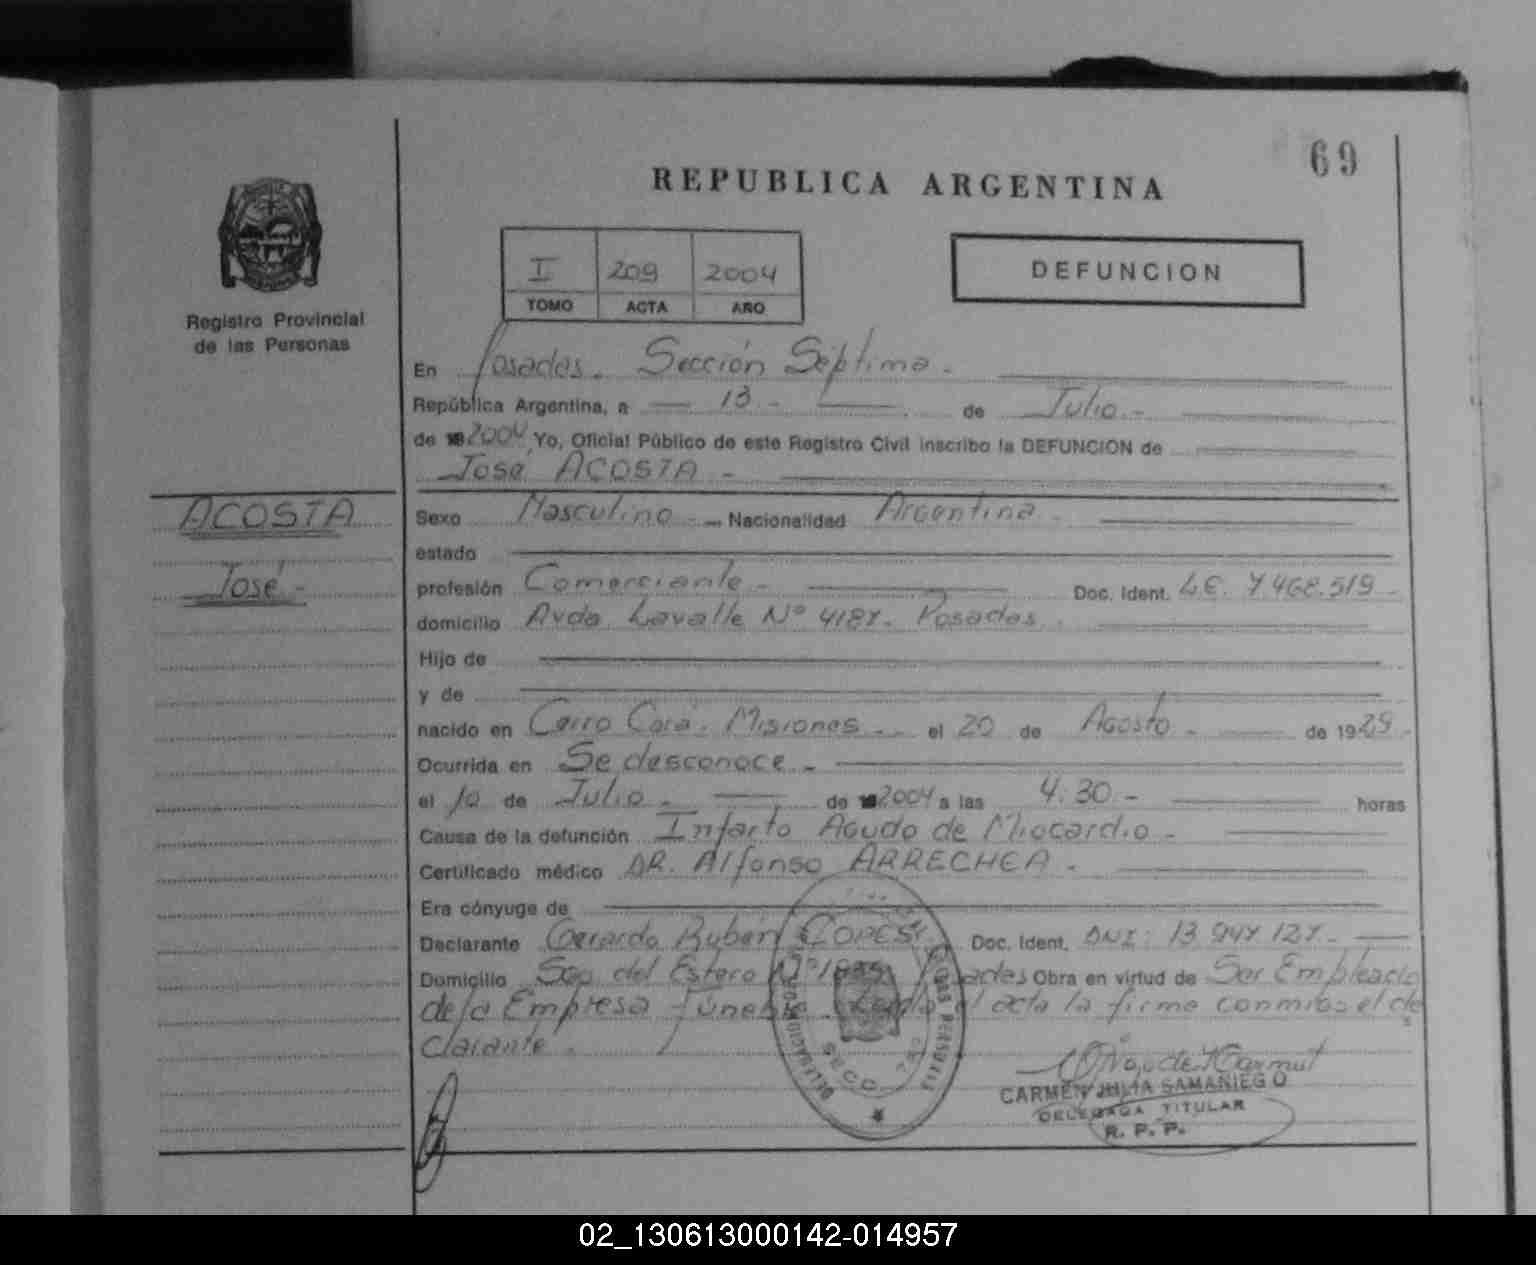 69
REPUBLICA ARGENTINA
I 209 2004
TOMO ACTA AÑO
DEFUNCION
Registro Provincial
de las Personas
En Posadas. Sección Séptima.
República Argentina, a 13 - de Julio -
de 2004 Yo, Oficial Público de este Registro Civil inscribo la DEFUNCION de
José ACOSTA -
ACOSTA
José -
Sexo Masculino - Nacionalidad Argentina -
estado
profesión Comerciante - Doc. Ident. L.E. 7.468.519 -
domicilio Avda Lavalle Nº 4187. Posadas.
Hijo de
y de
nacido en Cerro Corá. Misiones - el 20 de Agosto - de 1929 -
Ocurrida en Se desconoce -
el 10 de Julio - de 2004 a las 4:30 - horas
Causa de la defunción Infarto Agudo de Miocardio -
Certificado médico DR. Alfonso ARRECHEA -
Era cónyuge de
Declarante Gerardo Rubén Doc. Ident. DNI: 13.947.127 -
Domicilio Sgo. del Estero Nº Posadas Obra en virtud de Ser Empleado
de la Empresa fúnebre. Leída el acta la firma conmigo el de
clarante.
SECC. 7
CARMEN JULIA SAMANIEGO
DELEGADA TITULAR
R. P. P.
02_130613000142-014957